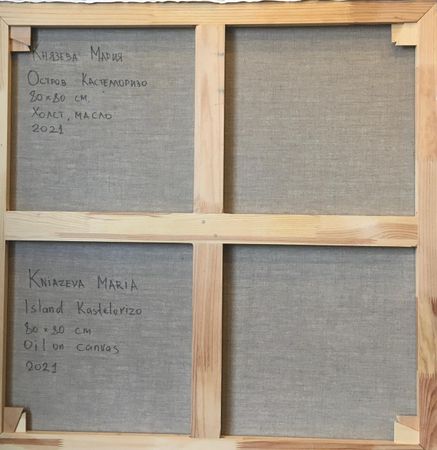 Князева Мария
Остров Кастелоризо
80×80 см
Холст, масло
2021
KNIAZEVA MARIA
Island Kastelorizo
80×80 cm
Oil on canvas
2021